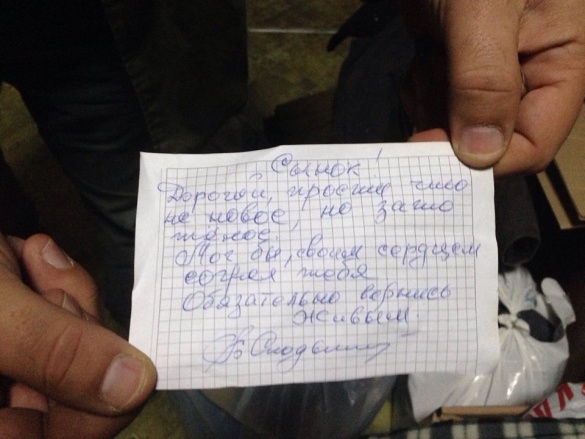 Сынок!
Дорогой, прости что
не новое, но зато
тёплое
Мог бы, своим сердцем
согрел тебя
Обязательно вернись
живым.